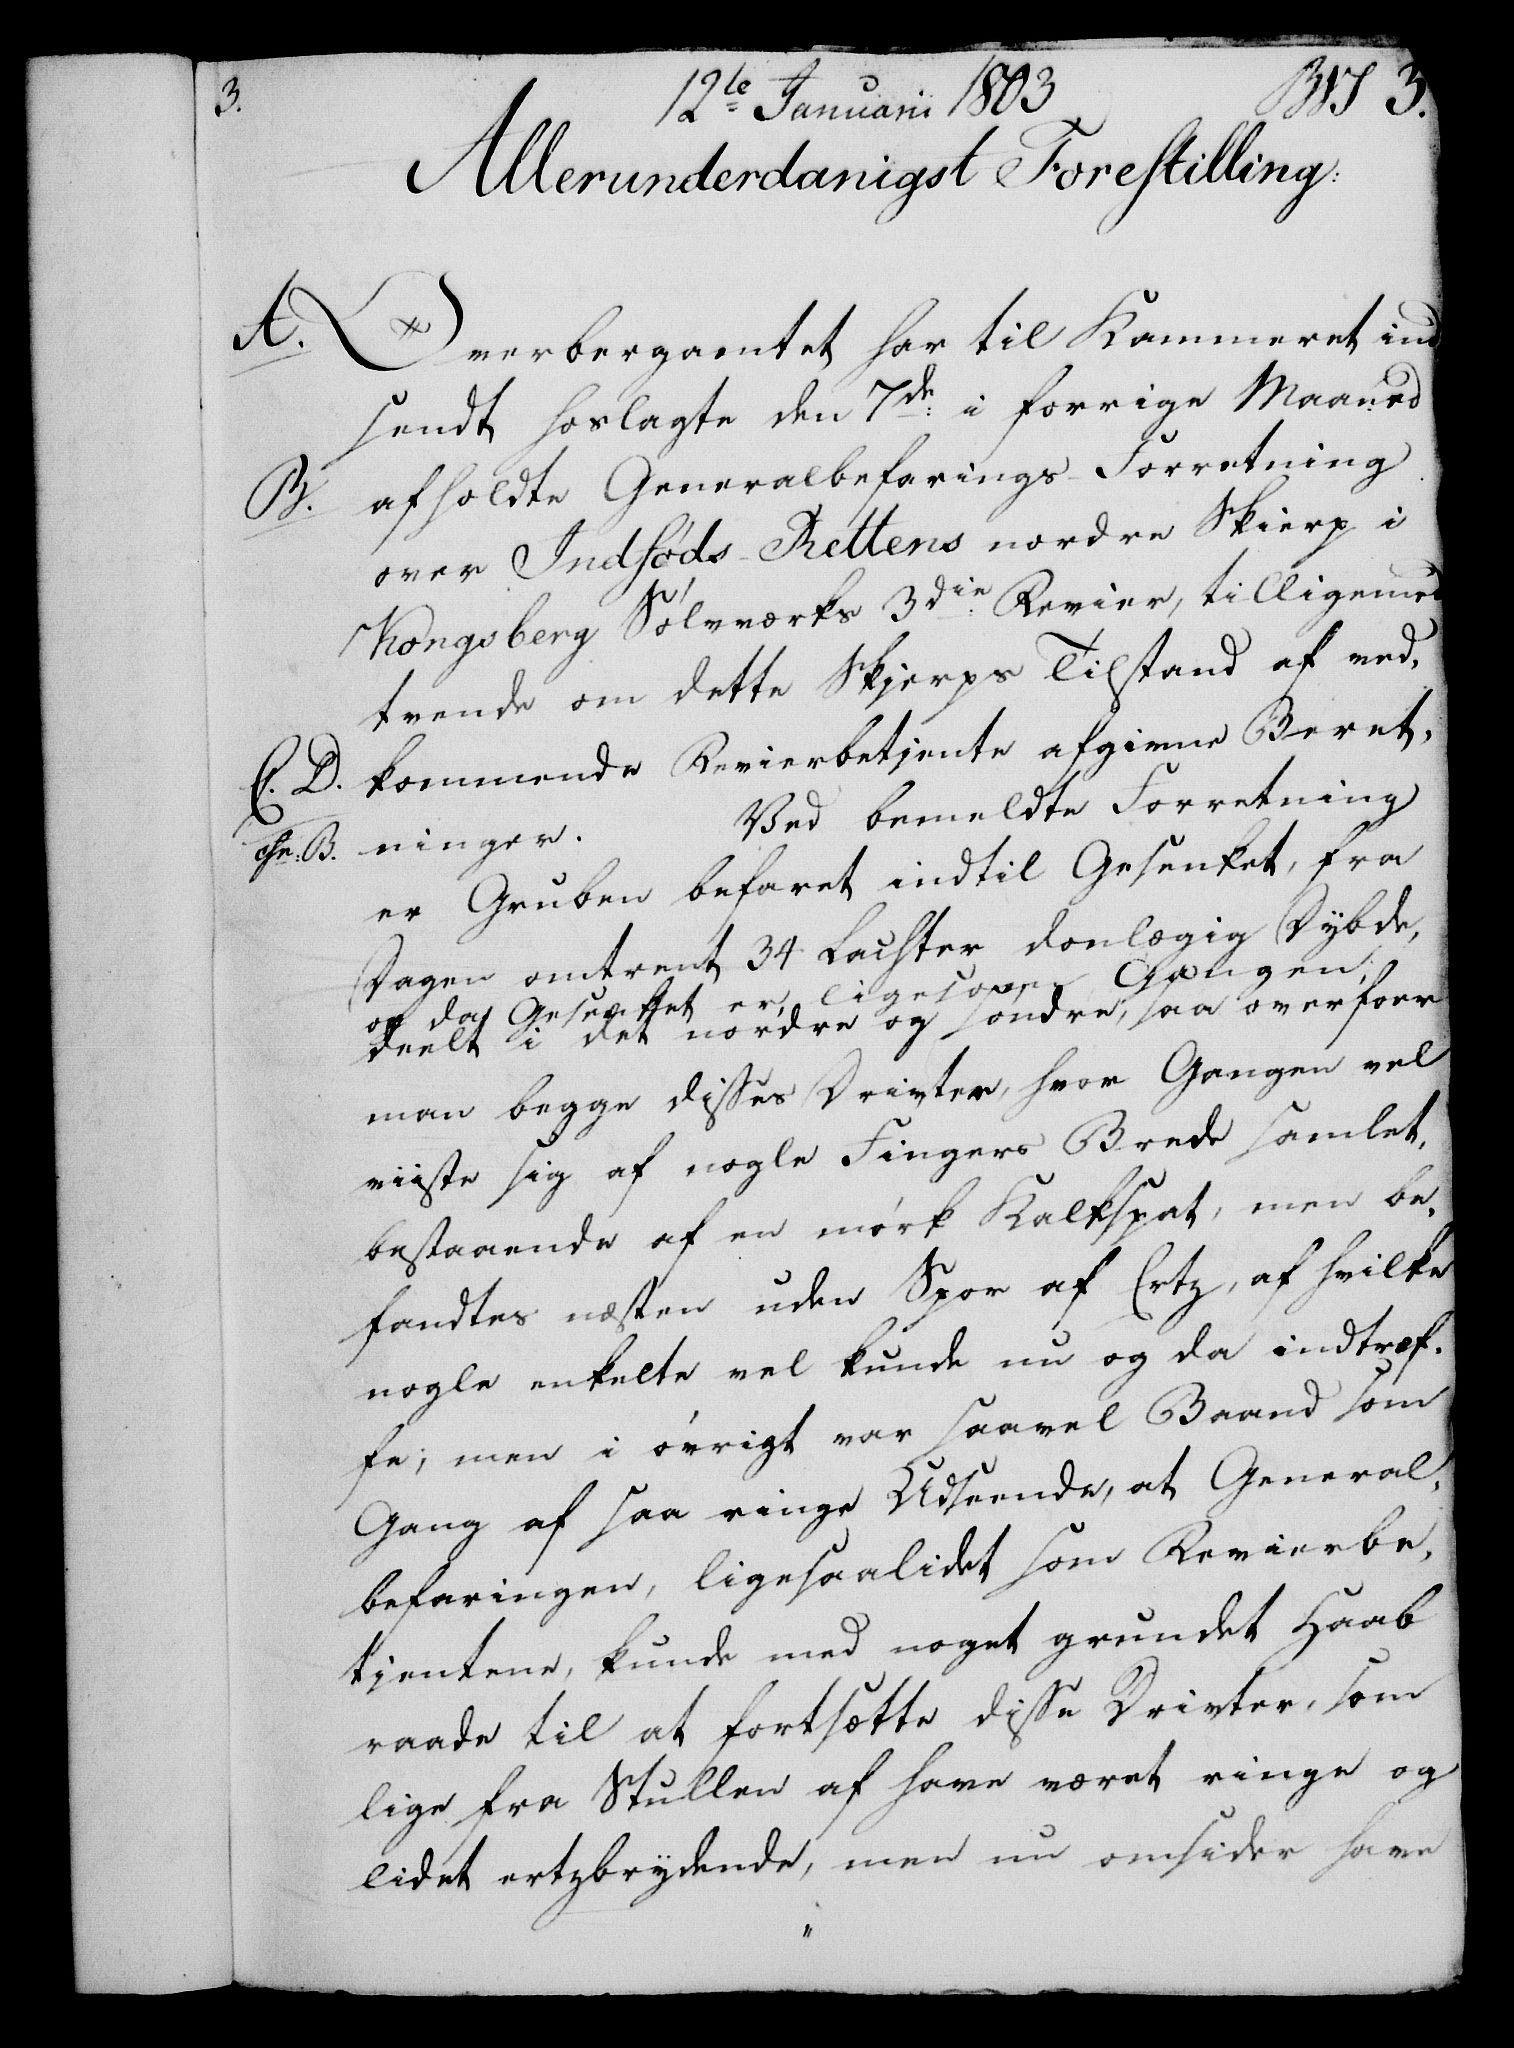 3.
12te Januarii 1803
3.
Allerunderdanigst Forestilling:
A. Overbergamtet har til Kammeret ind
sendt hoslagte den 7de i forrige Maaned
B. afholdte Generalbefarings-Forretning
over Indføds-Rettens nordre Skierp i
Kongsberg Sølvværks 3die Revier, tilligemed
tvende om dette Skjerps Tilstand af ved,
C. D. kommende Revierbetjente afgivne Beret,
B. ninger. Ved bemeldte Forretning
er Gruben befaret indtil Gesenket, fra
Dagen omtrent 34 Lachter donlægig Dybde,
og da Gesenket er, ligesom Gangen,
deelt i det nordre og søndre, saa overfoer
man begge disses Drivter, hvor Gangen vel
viiste sig af nogle Fingers Brede samlet,
bestaaende af en mørk Kalkspat, men be,
fandtes næsten uden Spor af Ertz, af hvilke
nogle enkelte vel kunde nu og da indtræf.
fe; men i øvrigt var saavel Baand som
Gang af saa ringe Udseende, at General,
befaringen, ligesaalidet som Revierbe,
tjentene, kunde med noget grundet Haab
raade til at fortsætte disse Drivter, som
lige fra Stullen af have været ringe og
lidet ertzbrydende, men nu omsider have